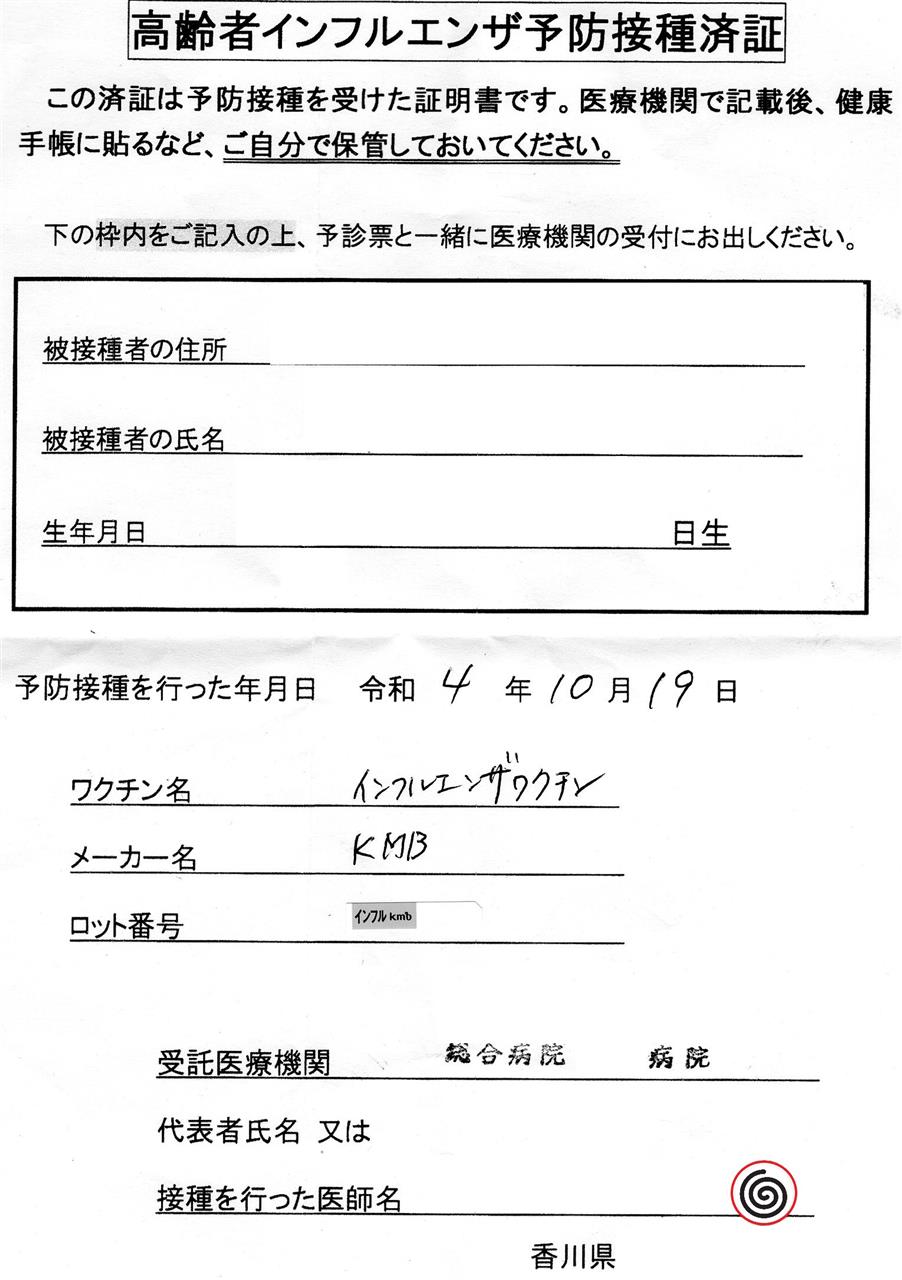 高齢者インフルエンザ予防接種済証
この済証は予防接種を受けた証明書です。医療機関で記載後、健康
手帳に貼るなど、ご自分で保管しておいてください。
下の枠内をご記入の上、予診票と一緒に医療機関の受付にお出しください。
被接種者の住所
被接種者の氏名
生年月日 日生
予防接種を行った年月日 令和 4 年 10 月 19 日
ワクチン名 インフルエンザワクチン
メーカー名 KMB
ロット番号 インフル kmb
受託医療機関 総合病院 病院
代表者氏名 又は
接種を行った医師名
香川県